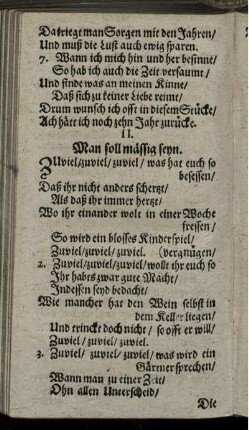 Da kriegt man Sorgen mit den Jahren/
Und muß die Lust auch ewig sparen.
7. Wann ich mich hin und her besinne/
So hab ich auch die Zeit versaumt/
Und finde was an meinen Kinne/
Daß sich zu keiner Liebe reimt/
Drum wunsch ich offt in diesem Stücke/
Ach hätt ich noch zehn Jahr zurücke.
II.
Man soll mässig seyn.
Zuviel/zuviel/zuviel/ was hat euch so
besessen/
Daß ihr nicht anders scherzt/
Als daß ihr immer herzt/
Wo ihr einander wolt in einer Woche
fressen/
So wird ein blosses Kinderspiel/
Zuviel/zuviel/zuviel. (vergnügen/
2. Zuviel/zuviel/zuviel/wollt ihr euch so
Ihr habts zwar gute Macht/
Indessen seyd bedacht/
Wie mancher hat den Wein selbst in
dem Keller liegen/
Und trinckt doch nicht/ so offt er will/
Zuviel/ zuviel/ zuviel.
3. Zuviel/ zuviel/ zuviel/ was wird ein
Gärtner sprechen/
Wann man zu einer Zeit/
Ohn allen Unterscheid/
Die